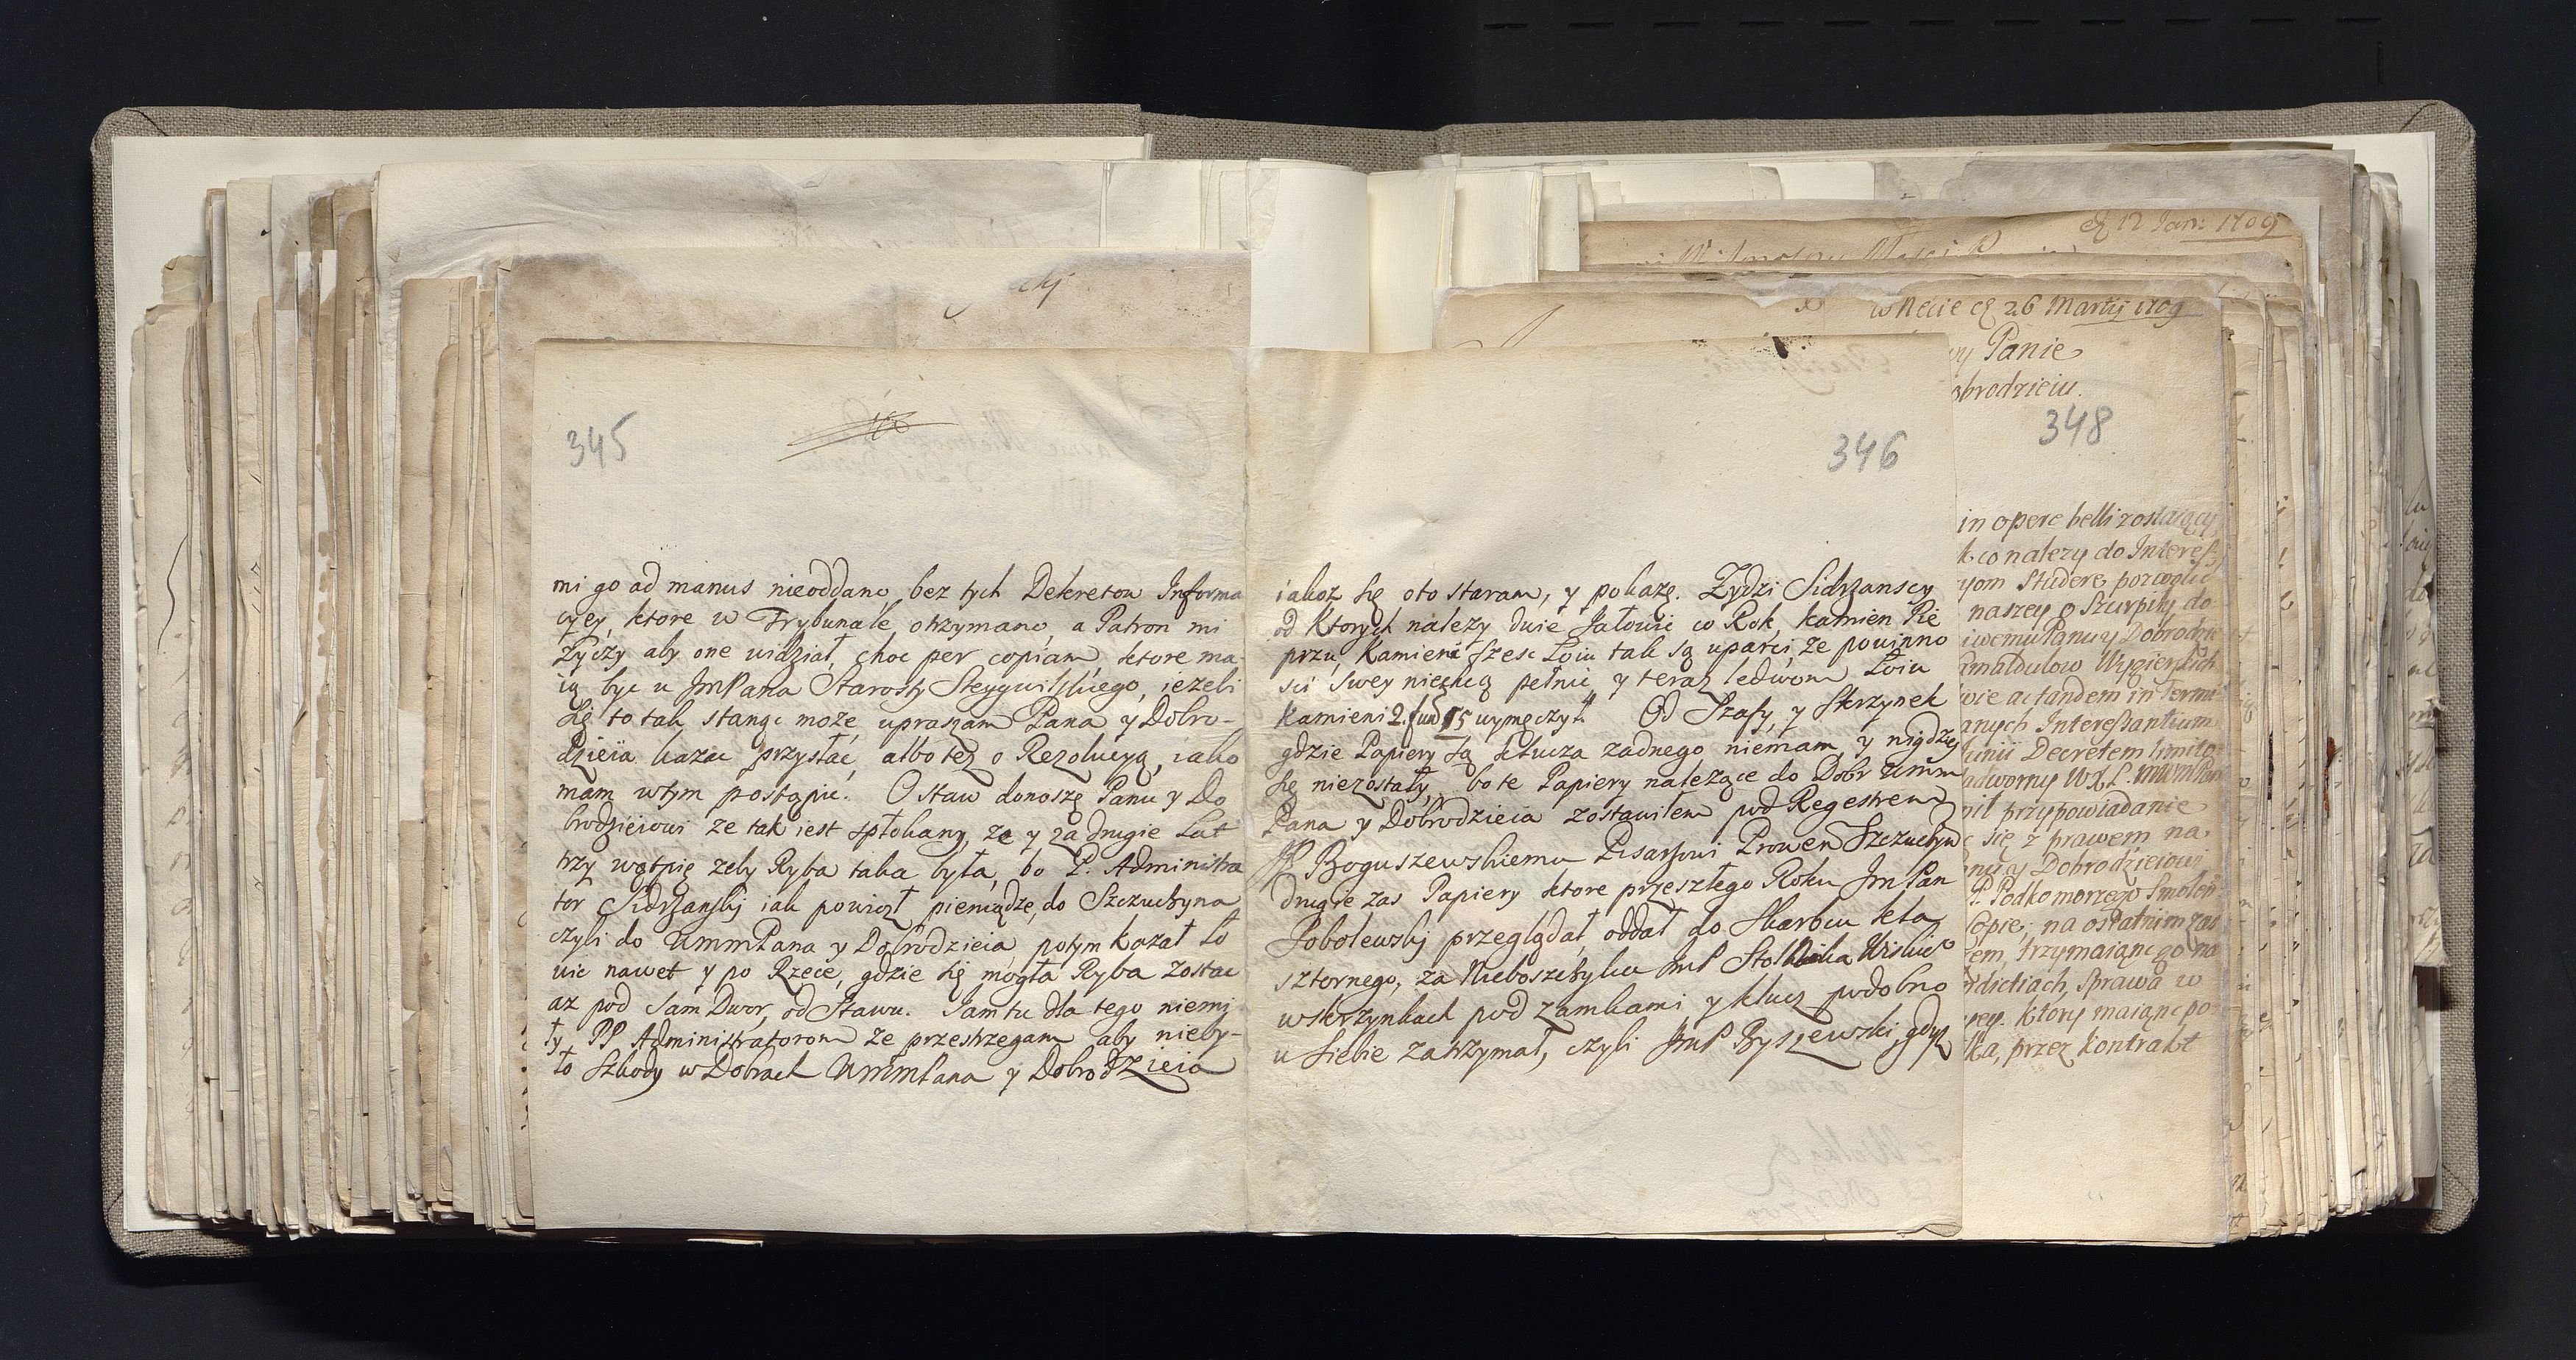 345
mi go ad manus nieoddano, bez tych Dekretow Informa
cyey, ktore w Trybunale otrzymano, a Patron mi
Zyczy aby one widział, choc per copiam, ktore ma-
ią byc u JmPana Starosty Steygwilskiego, iezeli
się to tak stanąc może, upraszam Pana y Dobro-
dzieia kazac przysłać, albo tez o Rezolucyą, iako
mam wtym postąpic. O staw donoszę Panu y Do
brodzieiowi ze tak iest spłokany, ze y za drugie Lat
trzy wątpię zeby Ryba taka była, bo P. Administra
tor Sidrzanskj iak powiozł pieniądze, do Szczuczyna
czyli do WmmPana y Dobrodzieia, potym kazał Ło
wic nawet y po Rzece, gdzie się mogła Ryba zostac
az pod sam Dwor, od Stawu. Jam tu dla tego niemi
ły PP Administratorom ze przestrzegam aby nieby-
ło Szkody w Dobrach WmmPana y Dobrodzieia
346
iakoz się oto staram, y pokazę. Zydzi Sidrzanscy
od Ktorych nalezy dwie Jałowic co Rok, kamien Pie
przu, Kamieni szesc Łoiu tak są uparci, ze powinno
sci swey niechcą pełnic y teraz ledwom Łoiu
Kamieni 2. fun 15 wymęczył. Od Szafy, y Skrzynek
gdzie Papiery są klucza zadnego niemam, y nigdzie
się niezostały, bo te Papiery nalezące do Dobr Wmm
Pana y Dobrodzieia zostawiłem pod Regestrem
JP Boguszewskiemu Pisarzowi Prowen Szczuczyn
drugie zas Papiery ktore przeszłego Roku JmPan
Sobolewskj przeglądał, oddał do Skarbcu kla
sztornego, za Nieboszczyka JmP Stolnika Wislic
wskrzynkach pod zamkami y klucz podobno
u siebie zatrzymał, czyli JmP Ryszewski, gdyz
12 Jan: 1709
26 Martij 1709
Panie
obrodzieiu.
348
in opere belli zostaiący
k co nalezy do Interess
naszey o Szurpiły do
iwemu Panu y Dobrodzie
amaldulow Wygierskich
wie ac tandem in Termi
anych Interessantium
Decretem limito
przypowiadanie
się z prawem na
y Dobrodzieiowi
P. Podkomorzego Smolen
opie, na ostatnim zas
em, trzymaiącego na
Sprawa w
ktory maiąc po
ka, przez kontrakt